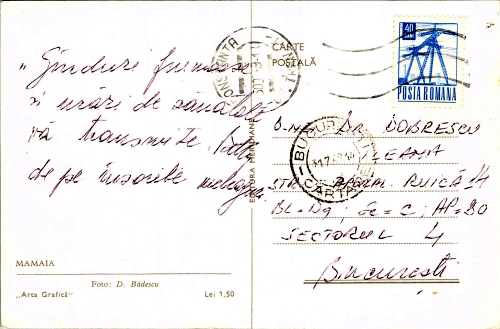 „Gînduri frumoase
și urări de sănătate
vă transmite
de pe însorite meleaguri
MAMAIA
Foto: D. Bădescu
„Arta Grafică”
Lei 1,50
EDITURA MERIDIANE
CARTE
POȘTALĂ
CONSTANȚA
40
BANI
POSTA ROMANA
BUCUREȘTI
CARTARE
DR. DOBRESCU
ILEANA
STR. RUICĂ 14
BL=D9, Sc=C; AP=80
SECTORUL 4
București